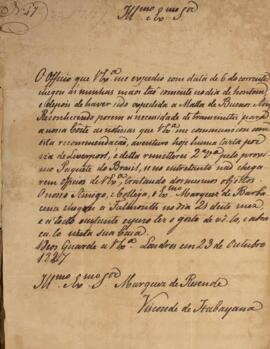 Nº 57
Illmo. e Exmo. Snr.
O Officio que V. Exª. me expedio com data de 6 do corrente
chegou ás minhas mãos tão somente no dia de hontem,
e depois de haver sido expedida a Malla de Buenos Ayres.
Reconhecendo porem a necessidade de transmittir para
a nossa Corte as noticias que V. Exª. me communicou com tanta
recommendação, aventuro hoje huma carta por
via de Liverpool, e della remetterei 2ª. via pelo proximo
Paquete do Brasil, se no entretanto não chegarem
officios de V. Exª. tratando dos mesmos objectos
O nosso Amigo, e Collega, o Exmo. Marquez de Barbacena
chegou a Falmouth no dia 21 deste mez
e a todo instante espero ter o gosto de vê-lo, e abraçalo
nesta sua Caza.
Deos Guarde a V. Exª. Londres em 23 de Outubro
1827
Illmo. e Exmo. Snr. Marquez de Resende
Visconde de Itabayana